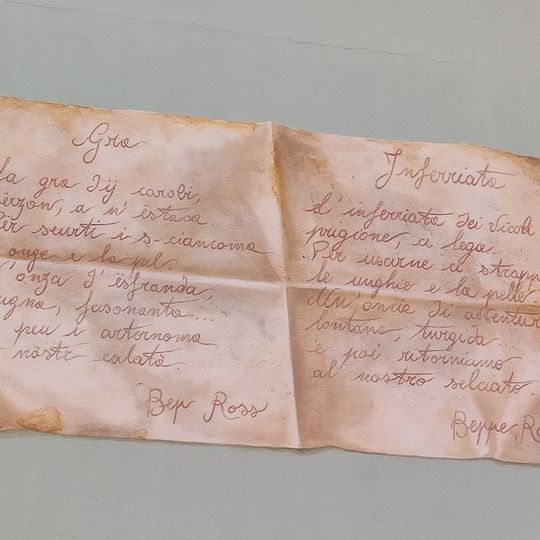 Gra
la gra dij carobi,
përzon, a n' ëstaca.
Për seurti i s-ciancoma
onge e la pl.
onza d' ësfranda,
fasonanta...
peui i artornoma
nòstr calatà.
Bep Ross
Inferriata
L' inferriata dei vicoli
prigione, ci lega.
Per uscirne ci strapp
le unghie e la pelle
Un' oncia di avventur
lontana, turgida...
e poi ritorniamo
al nostro selciato.
Beppe Ro